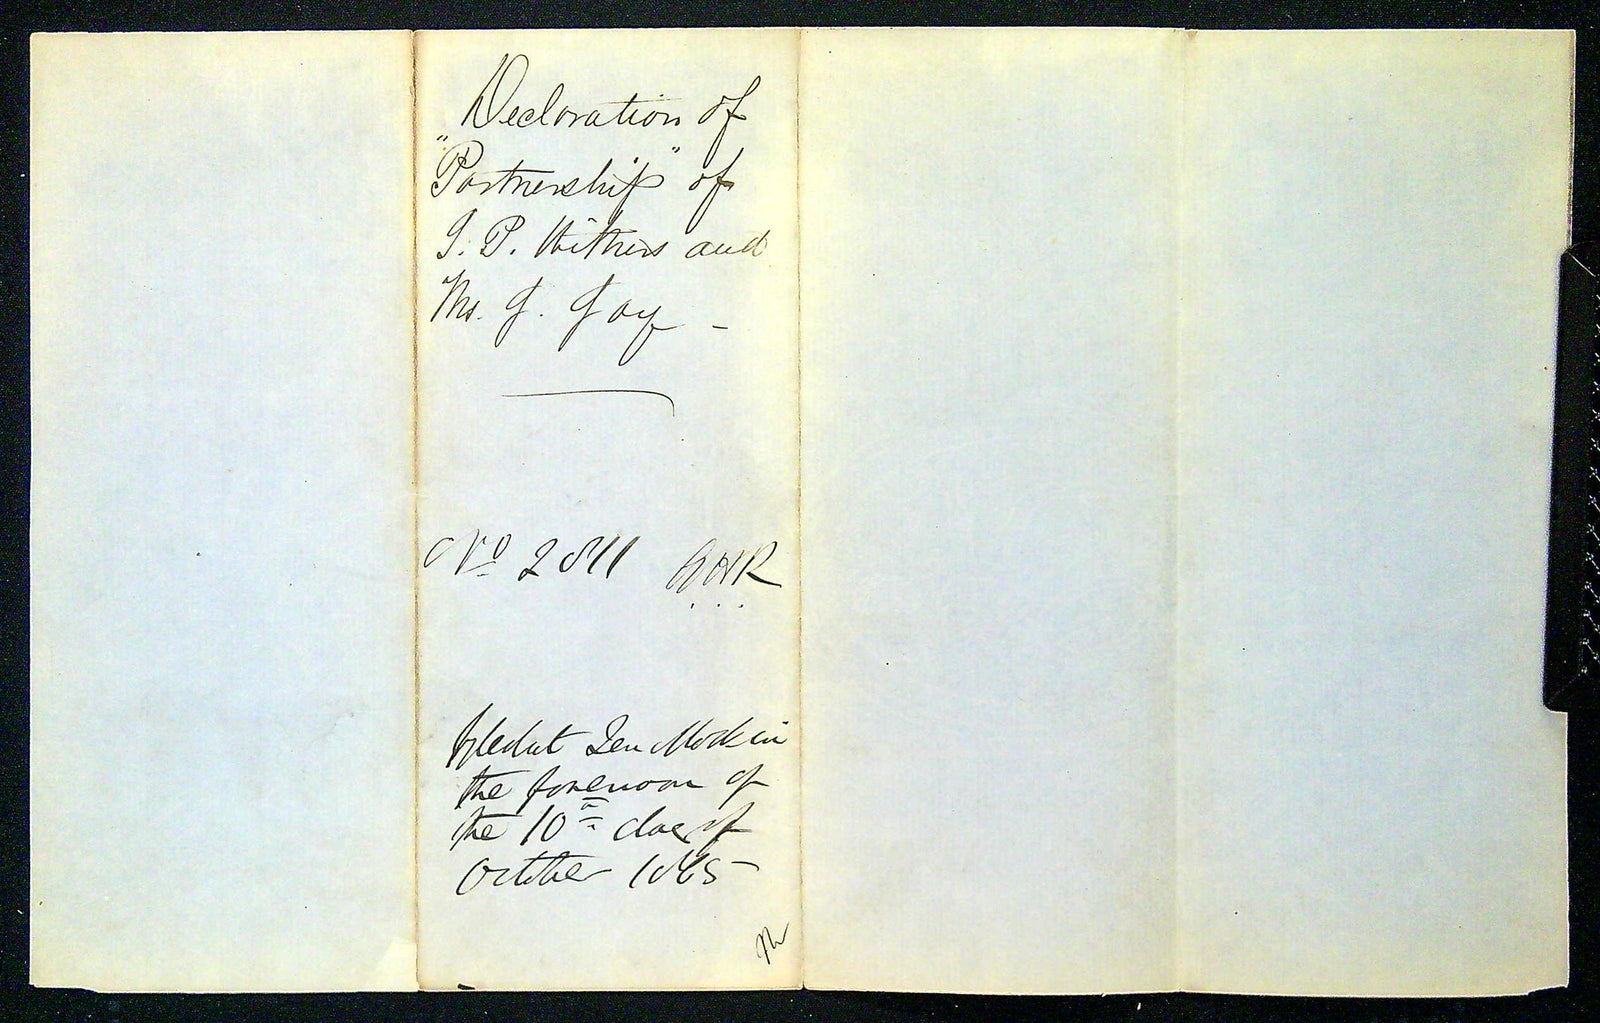 Declaration of
"Partnership" of
J. P. Withers and
Ms. J. Joy –
No 2811
Filed at Ten oClock in
the forenoon of
the 10th day of
October 1865